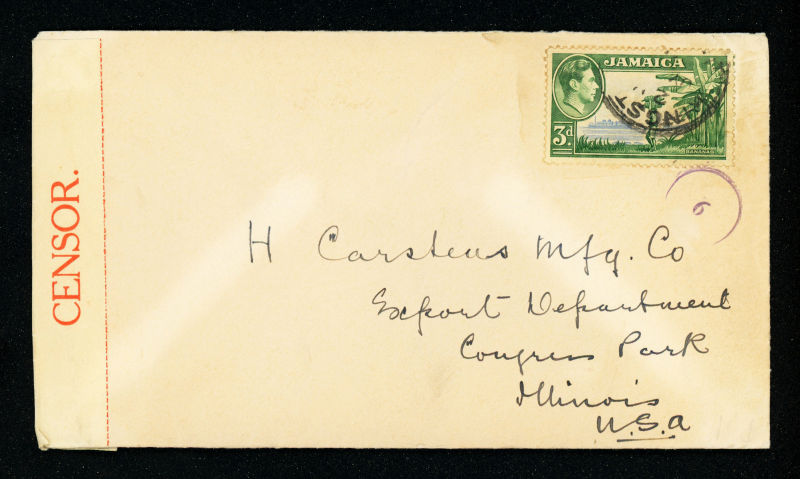 CENSOR.
JAMAICA
3d.
BANANAS
6
H Carstens Mfg. Co
Export Department
Congress Park
Illinois
U.S.a